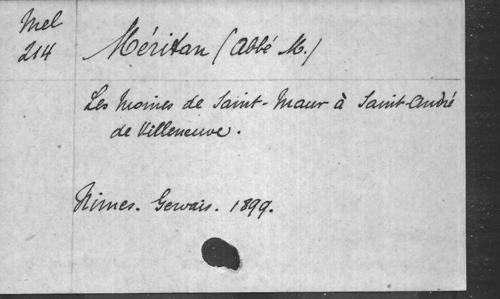 Mel
214
Méritan (Abbé M.)
Les Moines de Saint-Maur à Saint-André
de Villeneuve.
Nimes. Gervais. 1899.